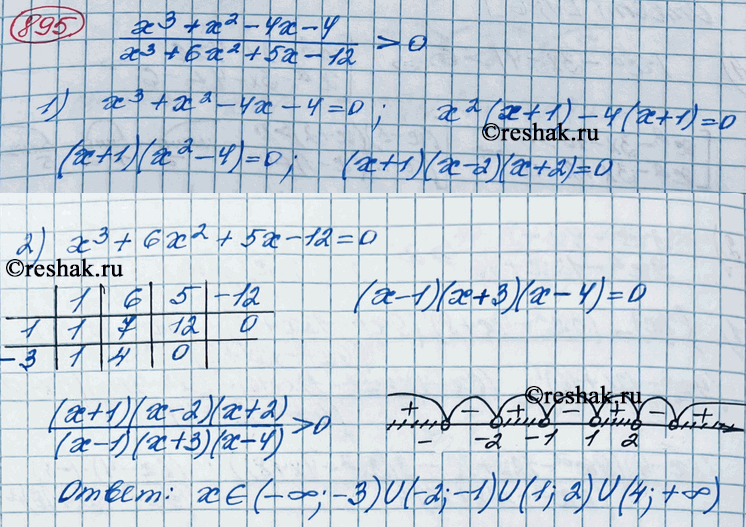 895
x³ + x² - 4x - 4 / x³ + 6x² + 5x - 12 > 0
1) x³ + x² - 4x - 4 = 0; x² (x+1) - 4(x+1) = 0
©reshak.ru
(x+1)(x² - 4) = 0; (x+1)(x-2)(x+2) = 0
2) x³ + 6x² + 5x - 12 = 0
©reshak.ru
1 6 5 -12
1 1 7 12 0
-3 1 4 0
(x-1)(x+3)(x-4) = 0
(x+1)(x-2)(x+2) / (x-1)(x+3)(x-4) > 0
©reshak.ru
+ - + - + - +
- -2 -1 1 2
Ответ: x ∈ (-∞; -3) U (-2; -1) U (1; 2) U (4; +∞)